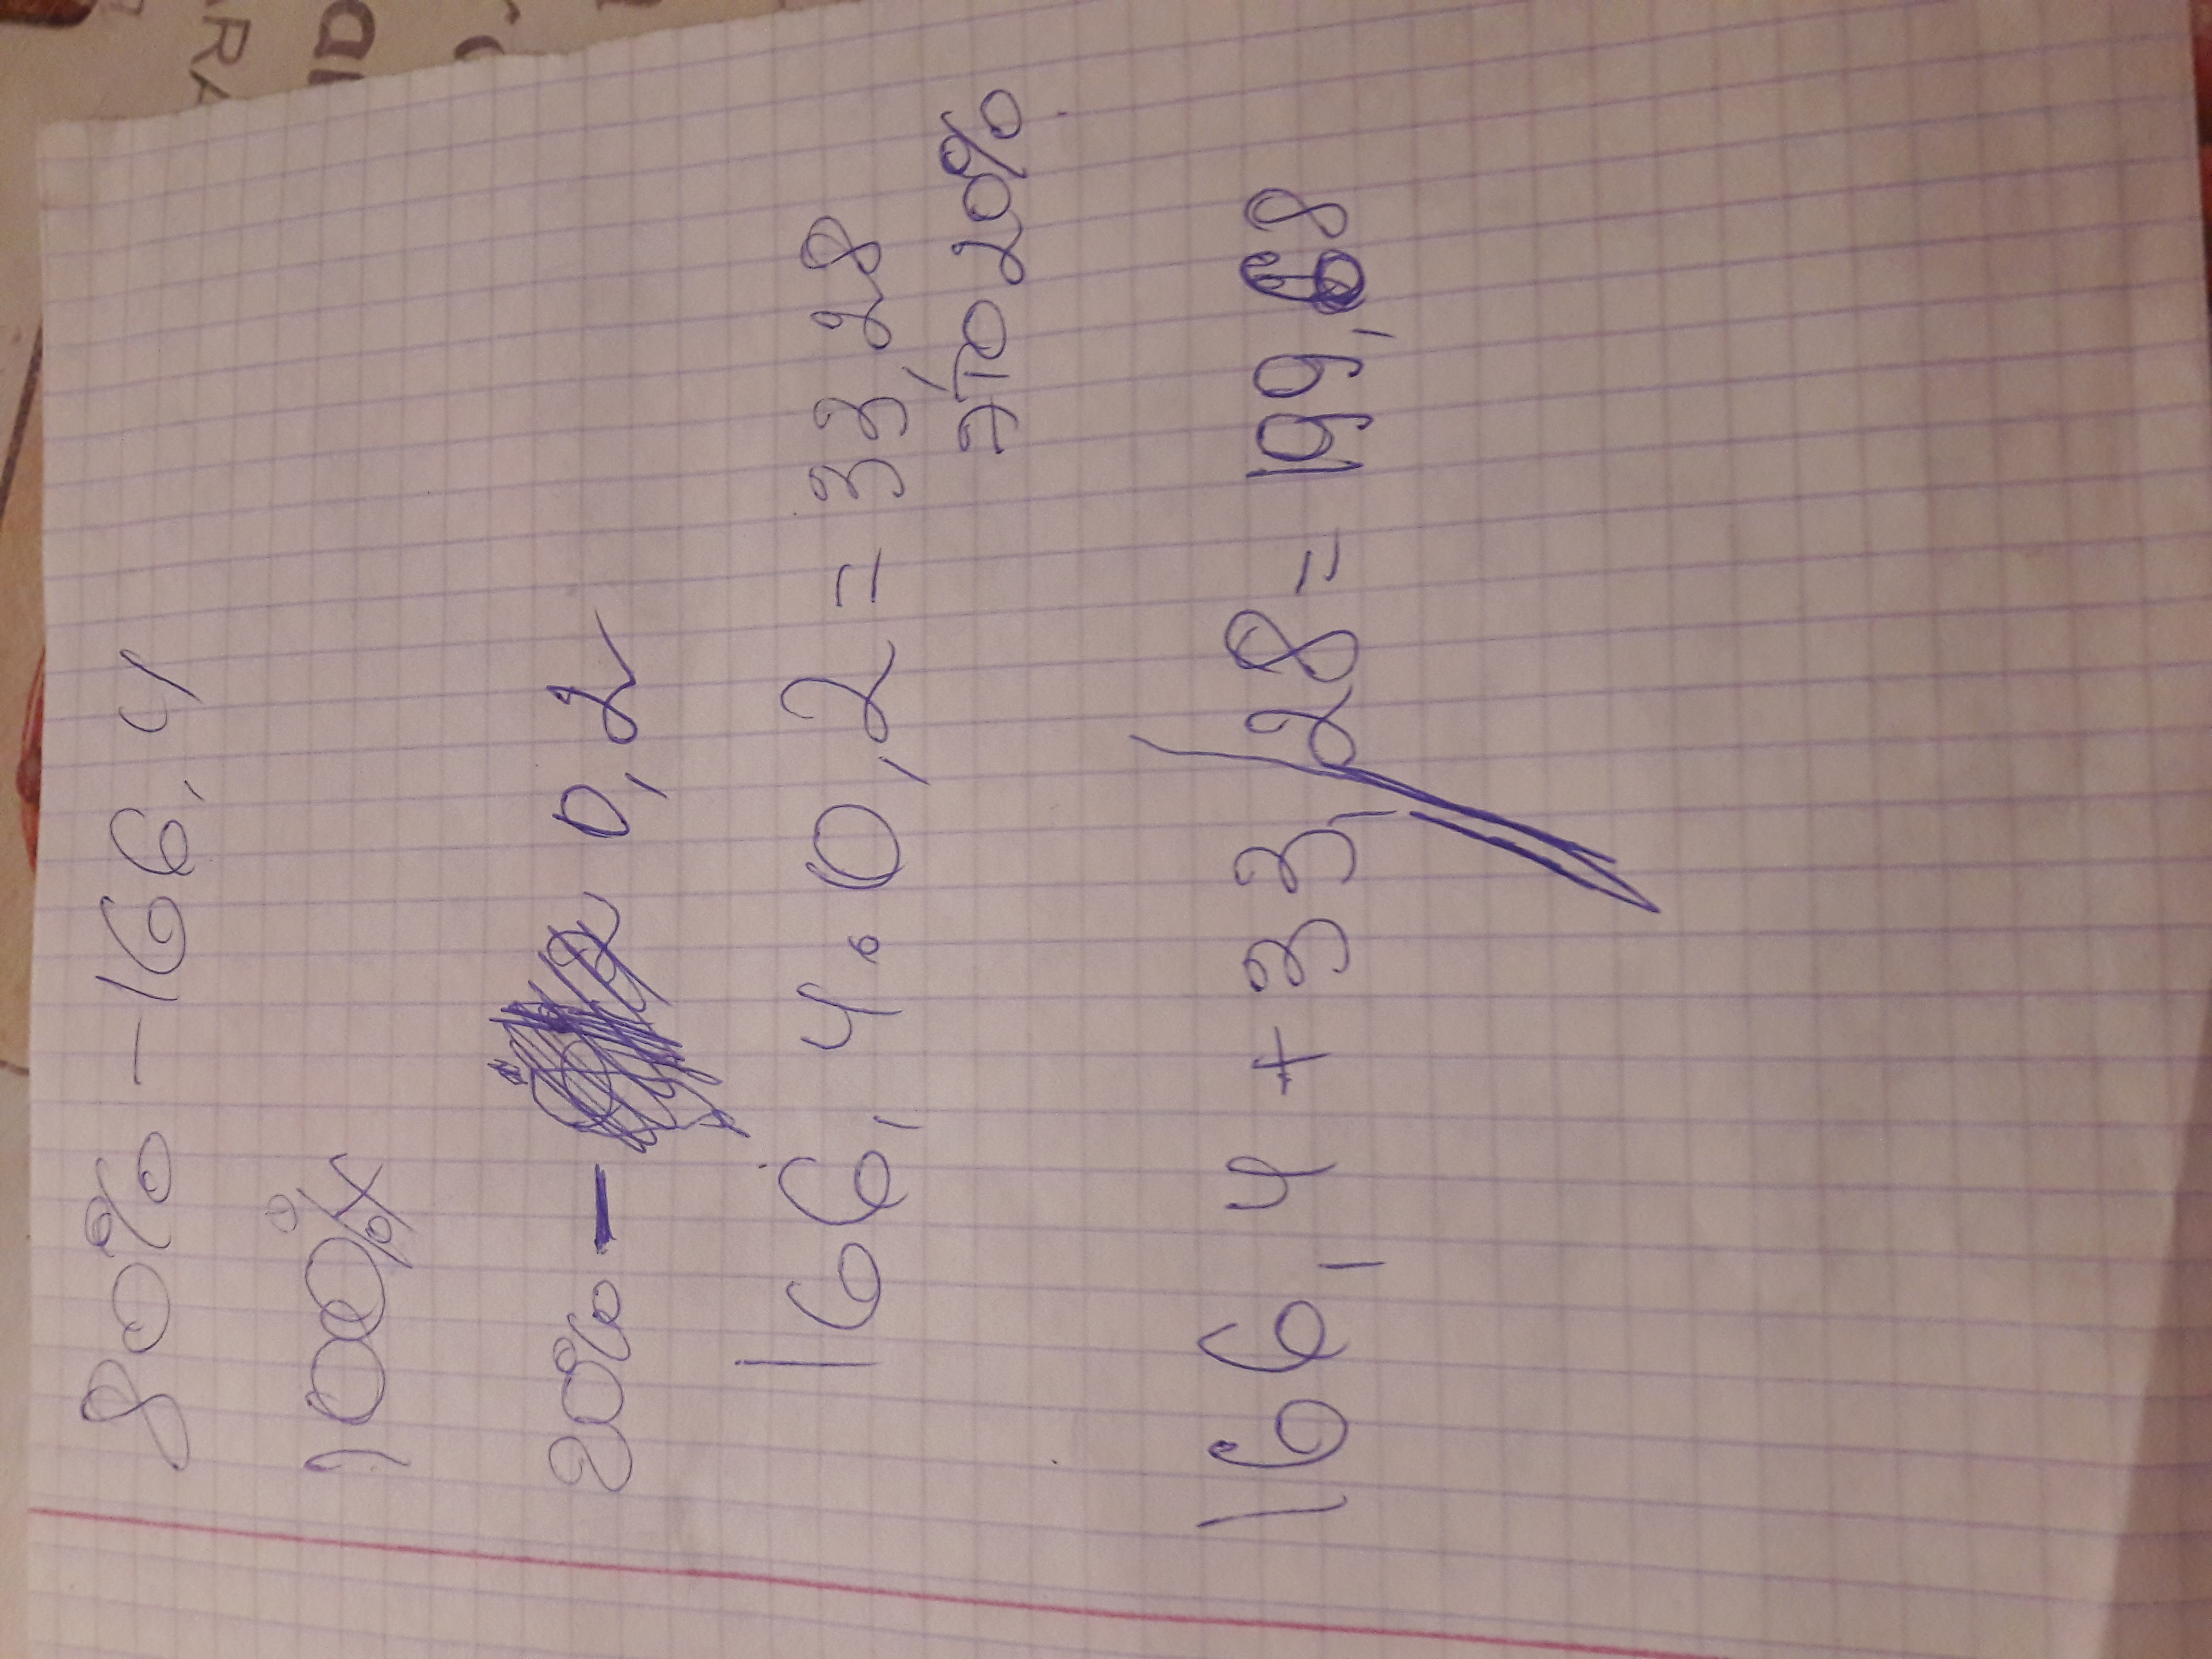 80% - 166,4
100%
20% - 0,2
166,4 • 0,2 = 33,28
это 20%
166,4 + 33,28 = 199,68